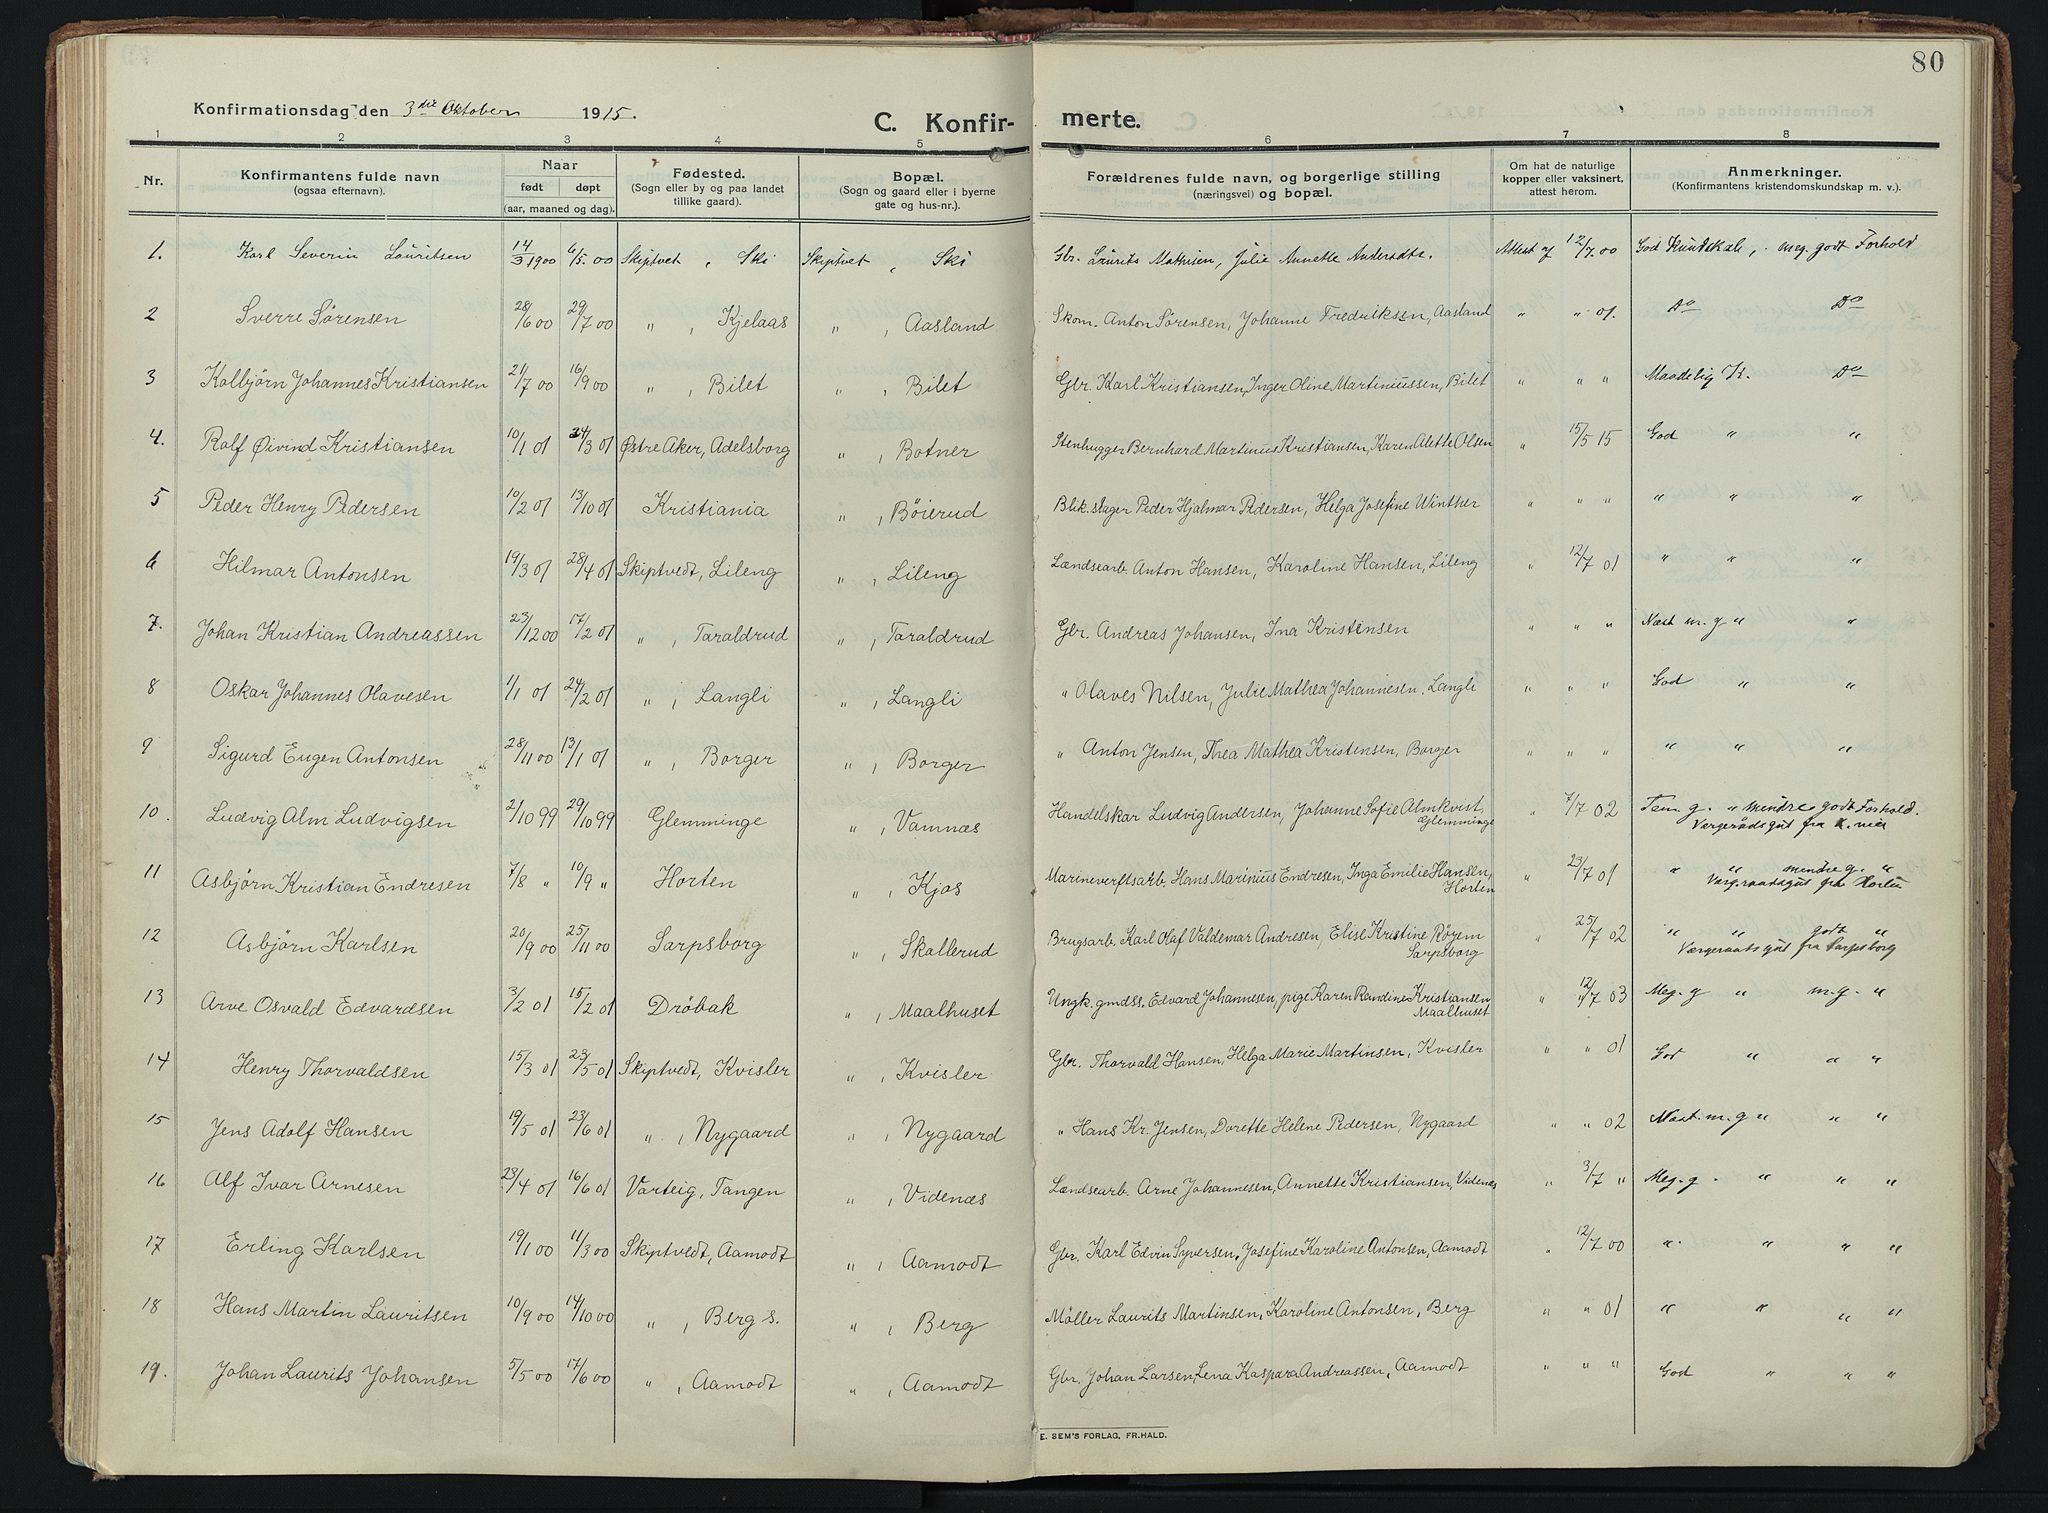 80
Konfirmationsdag den 3die Oktober 1915.
C. Konfirmerte.
1 2 3 4 5 6 7 8
Nr. Konfirmantens fulde navn (ogsaa efternavn). Naar født døpt (aar, maaned og dag). Fødested. (Sogn eller by og paa landet tillike gaard). Bopæl. (Sogn og gaard eller i byerne gate og hus-nr.). Forældrenes fulde navn, og borgerlige stilling (næringsvei) og bopæl. Om hat de naturlige kopper eller vaksinert, attest herom. Anmerkninger. (Konfirmantens kristendomskundskap m. v.).
1. Karl Severin Lauritsen 14/3 1900 6/5 00 Skiptvet, Ski Skiptvet, Ski Gbr. Laurits Mathisen, Julie Annette Andersdtr. Attest af 12/7 00 God Kundskab, meg. godt Forhold
2 Sverre Sørensen 28/6 00 29/7 00 " , Kjelaas " , Aasland Skom. Anton Sørensen, Johanne Fredrikssen, Aasland " " 01. Do Do
3 Kolbjörn Johannes Kristiansen 21/7 00 16/9 00 " , Bilet " , Bilet Gbr. Karl Kristiansen, Inger Oline Martiniussen, Bilet " " " Maadelig K. Do
4. Rolf Øivind Kristiansen 10/1 01 24/3 01 Østre Aker, Adelsborg " , Botner Stenhugger Bernhard Martinus Kristiansen, Karen Alette Olsen " 15/5 15 God " "
5 Peder Henry Pedersen 10/2 01 13/10 01 Kristiania " , Böierud Blik.slager Peder Hjalmar Pedersen, Helga Josefine Winther " " " " " "
6 Hilmar Antonsen 19/3 01 28/4 01 Skiptvedt, Lileng " , Lileng Landsearb. Anton Hansen, Karoline Hansen, Lileng " 12/7 01 " " "
7. Johan Kristian Andreassen 23/12 00 17/2 01 " , Taraldrud " , Taraldrud Gbr. Andreas Johansen, Ina Kristensen " " " Næst m. g " "
8 Oskar Johannes Olavesen 1/1 01 24/2 01 " , Langli " , Langli " Olaves Nilsen, Julie Mathea Johannesen, Langli " " " God " "
9 Sigurd Eugen Antonsen 28/11 00 13/1 01 " , Borger " , Borger " Anton Jensen, Thea Mathea Kristensen, Borger " " " " " "
10. Ludvig Alm Ludvigsen 2/10 99 29/10 99 Glemminge " , Vamnæs Handelskar Ludvig Andersen, Johanne Sofie Almkvist, Glemminge " 7/7 02 Tem. g. " mindre godt Forhold. Værgerådsgut fra K.nia
11 Asbjörn Kristian Endresen 7/8 " 10/9 " Horten " , Kjos Marineverftsarb. Hans Marinius Endresen, Inga Emilie Hansen, Horten " 23/7 01 " " mindre g. " Værg.raadsgut fra Horten
12 Asbjörn Karlsen 20/9 00 25/11 00 Sarpsborg " , Skallerud Brugsarb. Karl Olaf Valdemar Andresen, Elise Kristine Røyem Sarpsborg " 25/7 02 " " godt " Værgeraadsgut fra Sarpsborg
13 Arve Osvald Edvardsen 3/2 01 15/2 01 Dröbak " , Maalhuset Ungk. gmdss. Edvard Johannesen, pige Karen Randine Kristiansen, Maalhuset " 12/7 03 Meg. g " m.g. "
14 Henry Thorvaldsen 15/3 01 23/5 01 Skiptvedt, Kvisler " , Kvisler Gbr. Thorvald Hansen, Helga Marie Martinsen, Kvisler " " 01 God " " "
15 Jens Adolf Hansen 19/5 01 23/6 01 " , Nygaard " , Nygaard " Hans Kr. Jensen, Dorette Helene Pedersen, Nygaard " " 02 Næst. m. g " " "
16 Alf Ivar Arnesen 23/4 01 16/6 01 Varteig, Tangen " , Videnæs Landsearb. Arne Johannesen, Annette Kristiansen, Videnæs " 3/7 " Meg. g. " " "
17 Erling Karlsen 19/1 00 11/3 00 Skiptvedt, Aamodt " , Aamodt Gbr. Karl Edvin Syversen, Josefine Karoline Antonsen, Aamodt " 12/7 00 " " " "
18 Hans Martin Lauritsen 10/9 00 14/10 00 " , Berg s. " , Berg Möller Laurits Martinsen, Karoline Antonsen, Berg " " 01 " " " "
19. Johan Laurits Johansen 5/5 00 17/6 00 " , Aamodt " , Aamodt Gbr. Johan Larsen, Lena Kaspara Andreassen, Aamodt " " " God " " "
E. SEM'S FORLAG, FR.HALD.